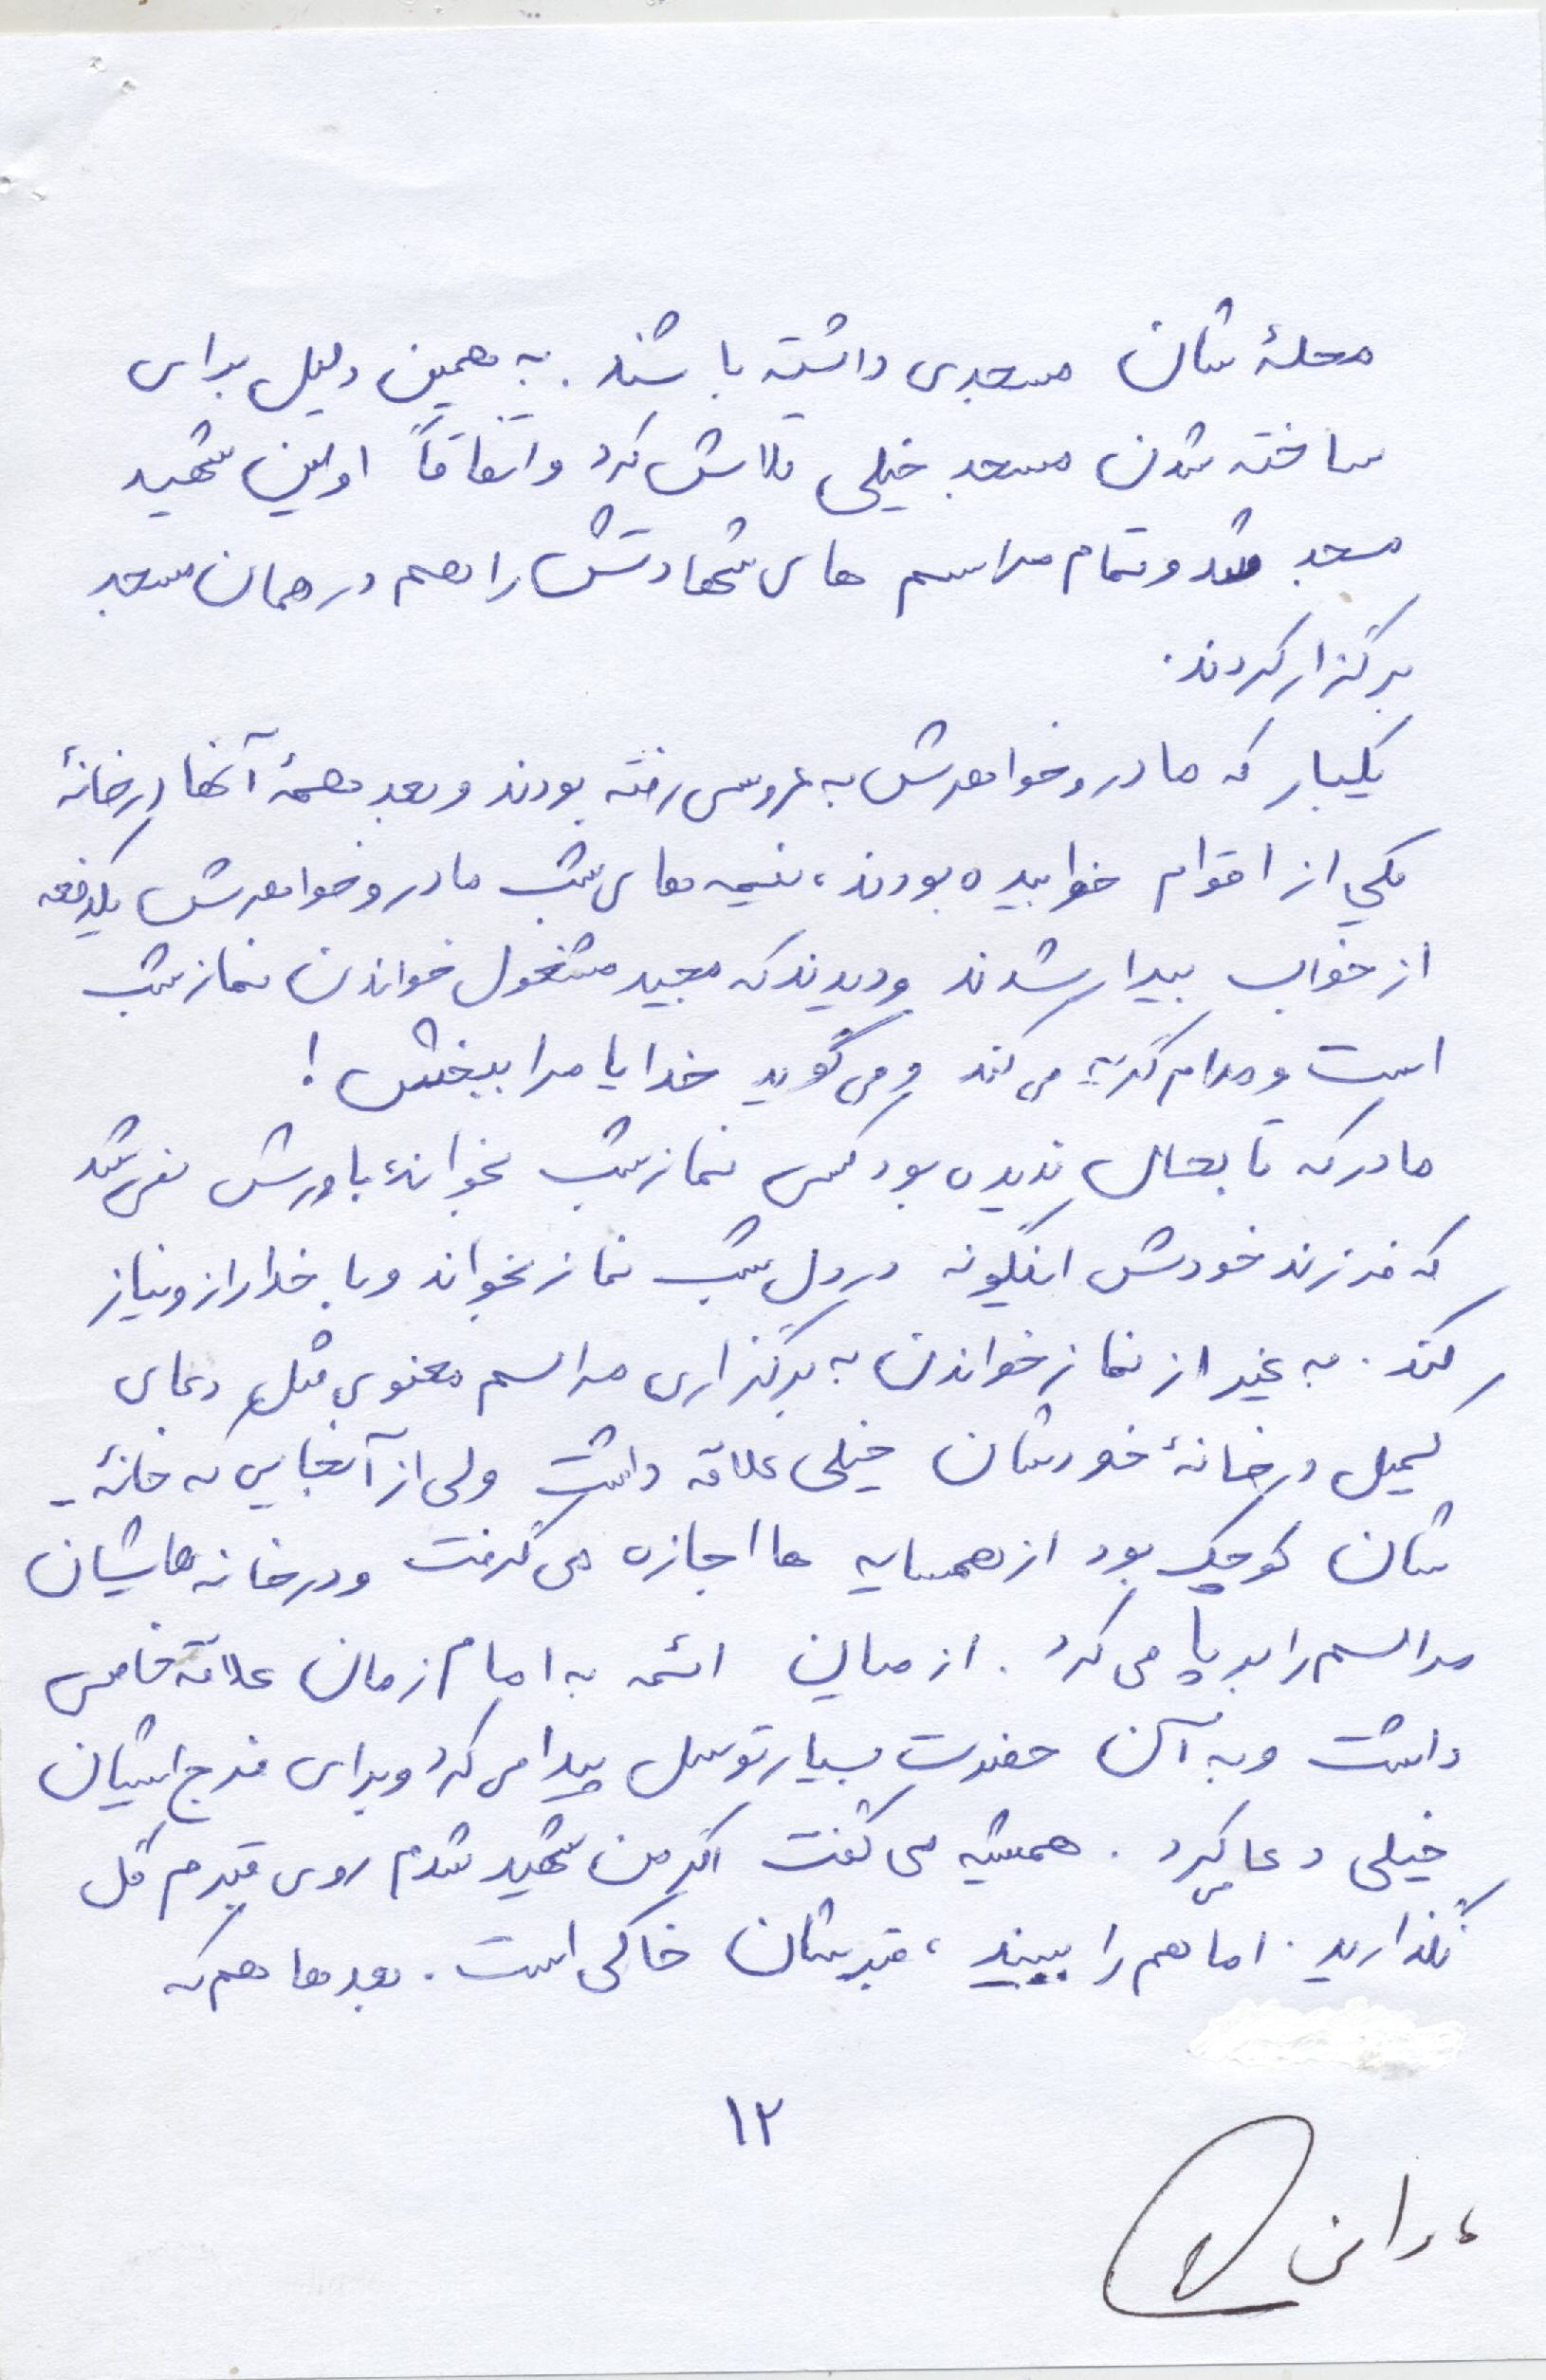 محلهٔ شان مسجدی داشته باشند. به همین دلیل برای
ساخته شدن مسجد خیلی تلاش کرد و اتفاقاً اولین شهید
مسجد شد و تمام مراسم های شهادتش را هم در همان مسجد
برگزار کردند.
یکبار که مادر و خواهرش به عروسی رفته بودند و بعد همهٔ آنها در خانهٔ
یکی از اقوام خوابیده بودند، نیمه های شب مادر و خواهرش یکدفعه
از خواب بیدار شدند و دیدند که مجید مشغول خواندن نماز شب
است و مدام گریه می کند و می گوید خدایا مرا ببخش!
مادر که تا بحال ندیده بود کسی نماز شب بخواند، باورش نمی شد
که فرزند خودش اینگونه در دل شب نماز بخواند و با خدا راز و نیاز
کند. به غیر از نماز خواندن به برگزاری مراسم معنوی مثل دعای
کمیل در خانهٔ خودشان خیلی علاقه داشت ولی از آنجایی که خانهٔ -
شان کوچک بود از همسایه ها اجازه می گرفت و در خانه هایشان
مراسم را بر پا می کرد. از میان ائمه به امام زمان علاقهٔ خاصی
داشت و به آن حضرت بسیار توسل پیدا می کرد و برای فرج ایشان
خیلی دعا می کرد. همیشه می گفت اگر من شهید شدم روی قبرم گل
نگذارید. امامم را ببینید، قبرشان خاکی است. بعدها هم که
۱۲